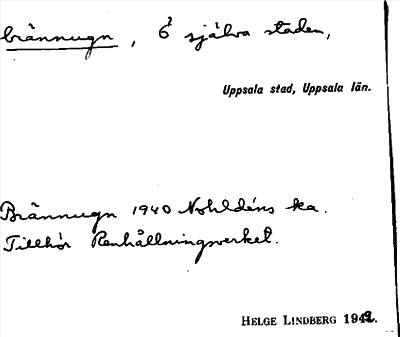 brännugn, i själva staden,
Uppsala stad, Uppsala län.
Brännugn 1940 Nohldéns ka.
Tillhör Renhållningsverket.
HELGE LINDBERG 1942.